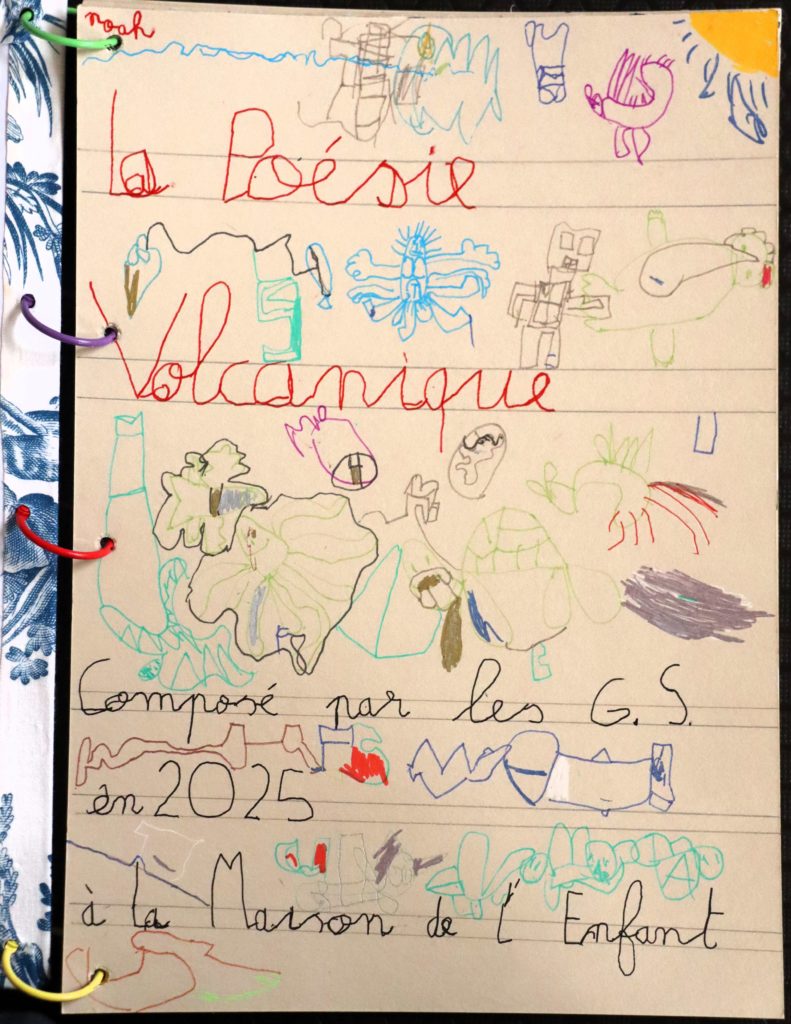 noah
la Poésie
Volcanique
Composé par les G.S.
en 2025
à la Maison de l'Enfant